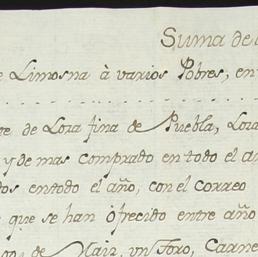 Suma de
e Limosna à varios Pobres, en
te de Loza fina de Puebla, Loza
y de mas comprado en todo el a
dos en todo el año, con el correo
e que se han ofrecido entre año
de Maiz, un Toro, Carne